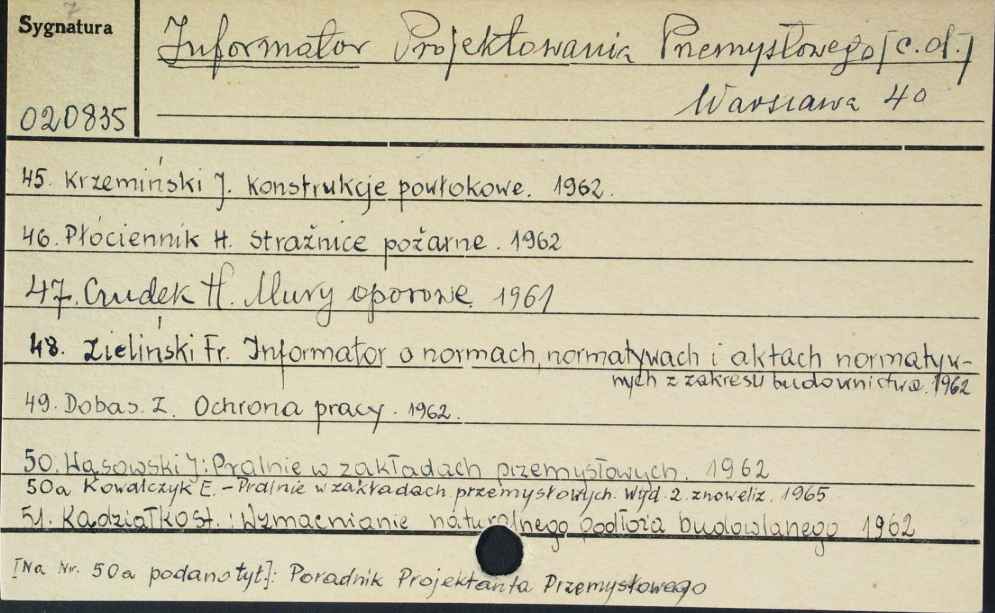 Sygnatura
Informator Projektowania Przemysłowego [c.d.]
020835
Warszawa 4°
45. Krzemiński J. Konstrukcje powłokowe. 1962.
46. Płóciennik H. Strażnice pożarne. 1962
47. Czudek H. Mury oporowe. 1961
48. Zieliński Fr. Informator o normach, normatywach i aktach normatyw-
nych z zakresu budownictwa. 1962
49. Dobas. Z. Ochrona pracy. 1962.
50. Wąsowski J: Pralnie w zakładach przemysłowych. 1962
50a Kowalczyk E. - Pralnie w zakładach przemysłowych. Wyd. 2. znoweliz. 1965
51. Kądziałko St.: Wzmacnianie naturalnego podłoża budowlanego 1962
[Na Nr. 50a podano tyt]: Poradnik Projektanta Przemysłowego